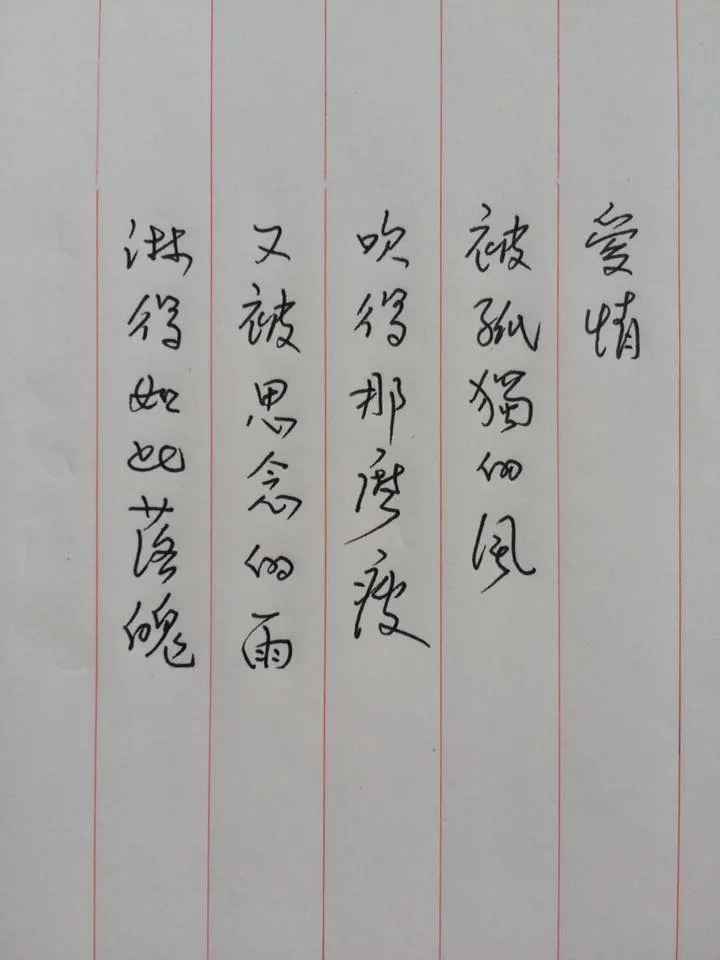 愛情
被孤獨的風
吹得那麼瘦
又被思念的雨
淋得如此落魄